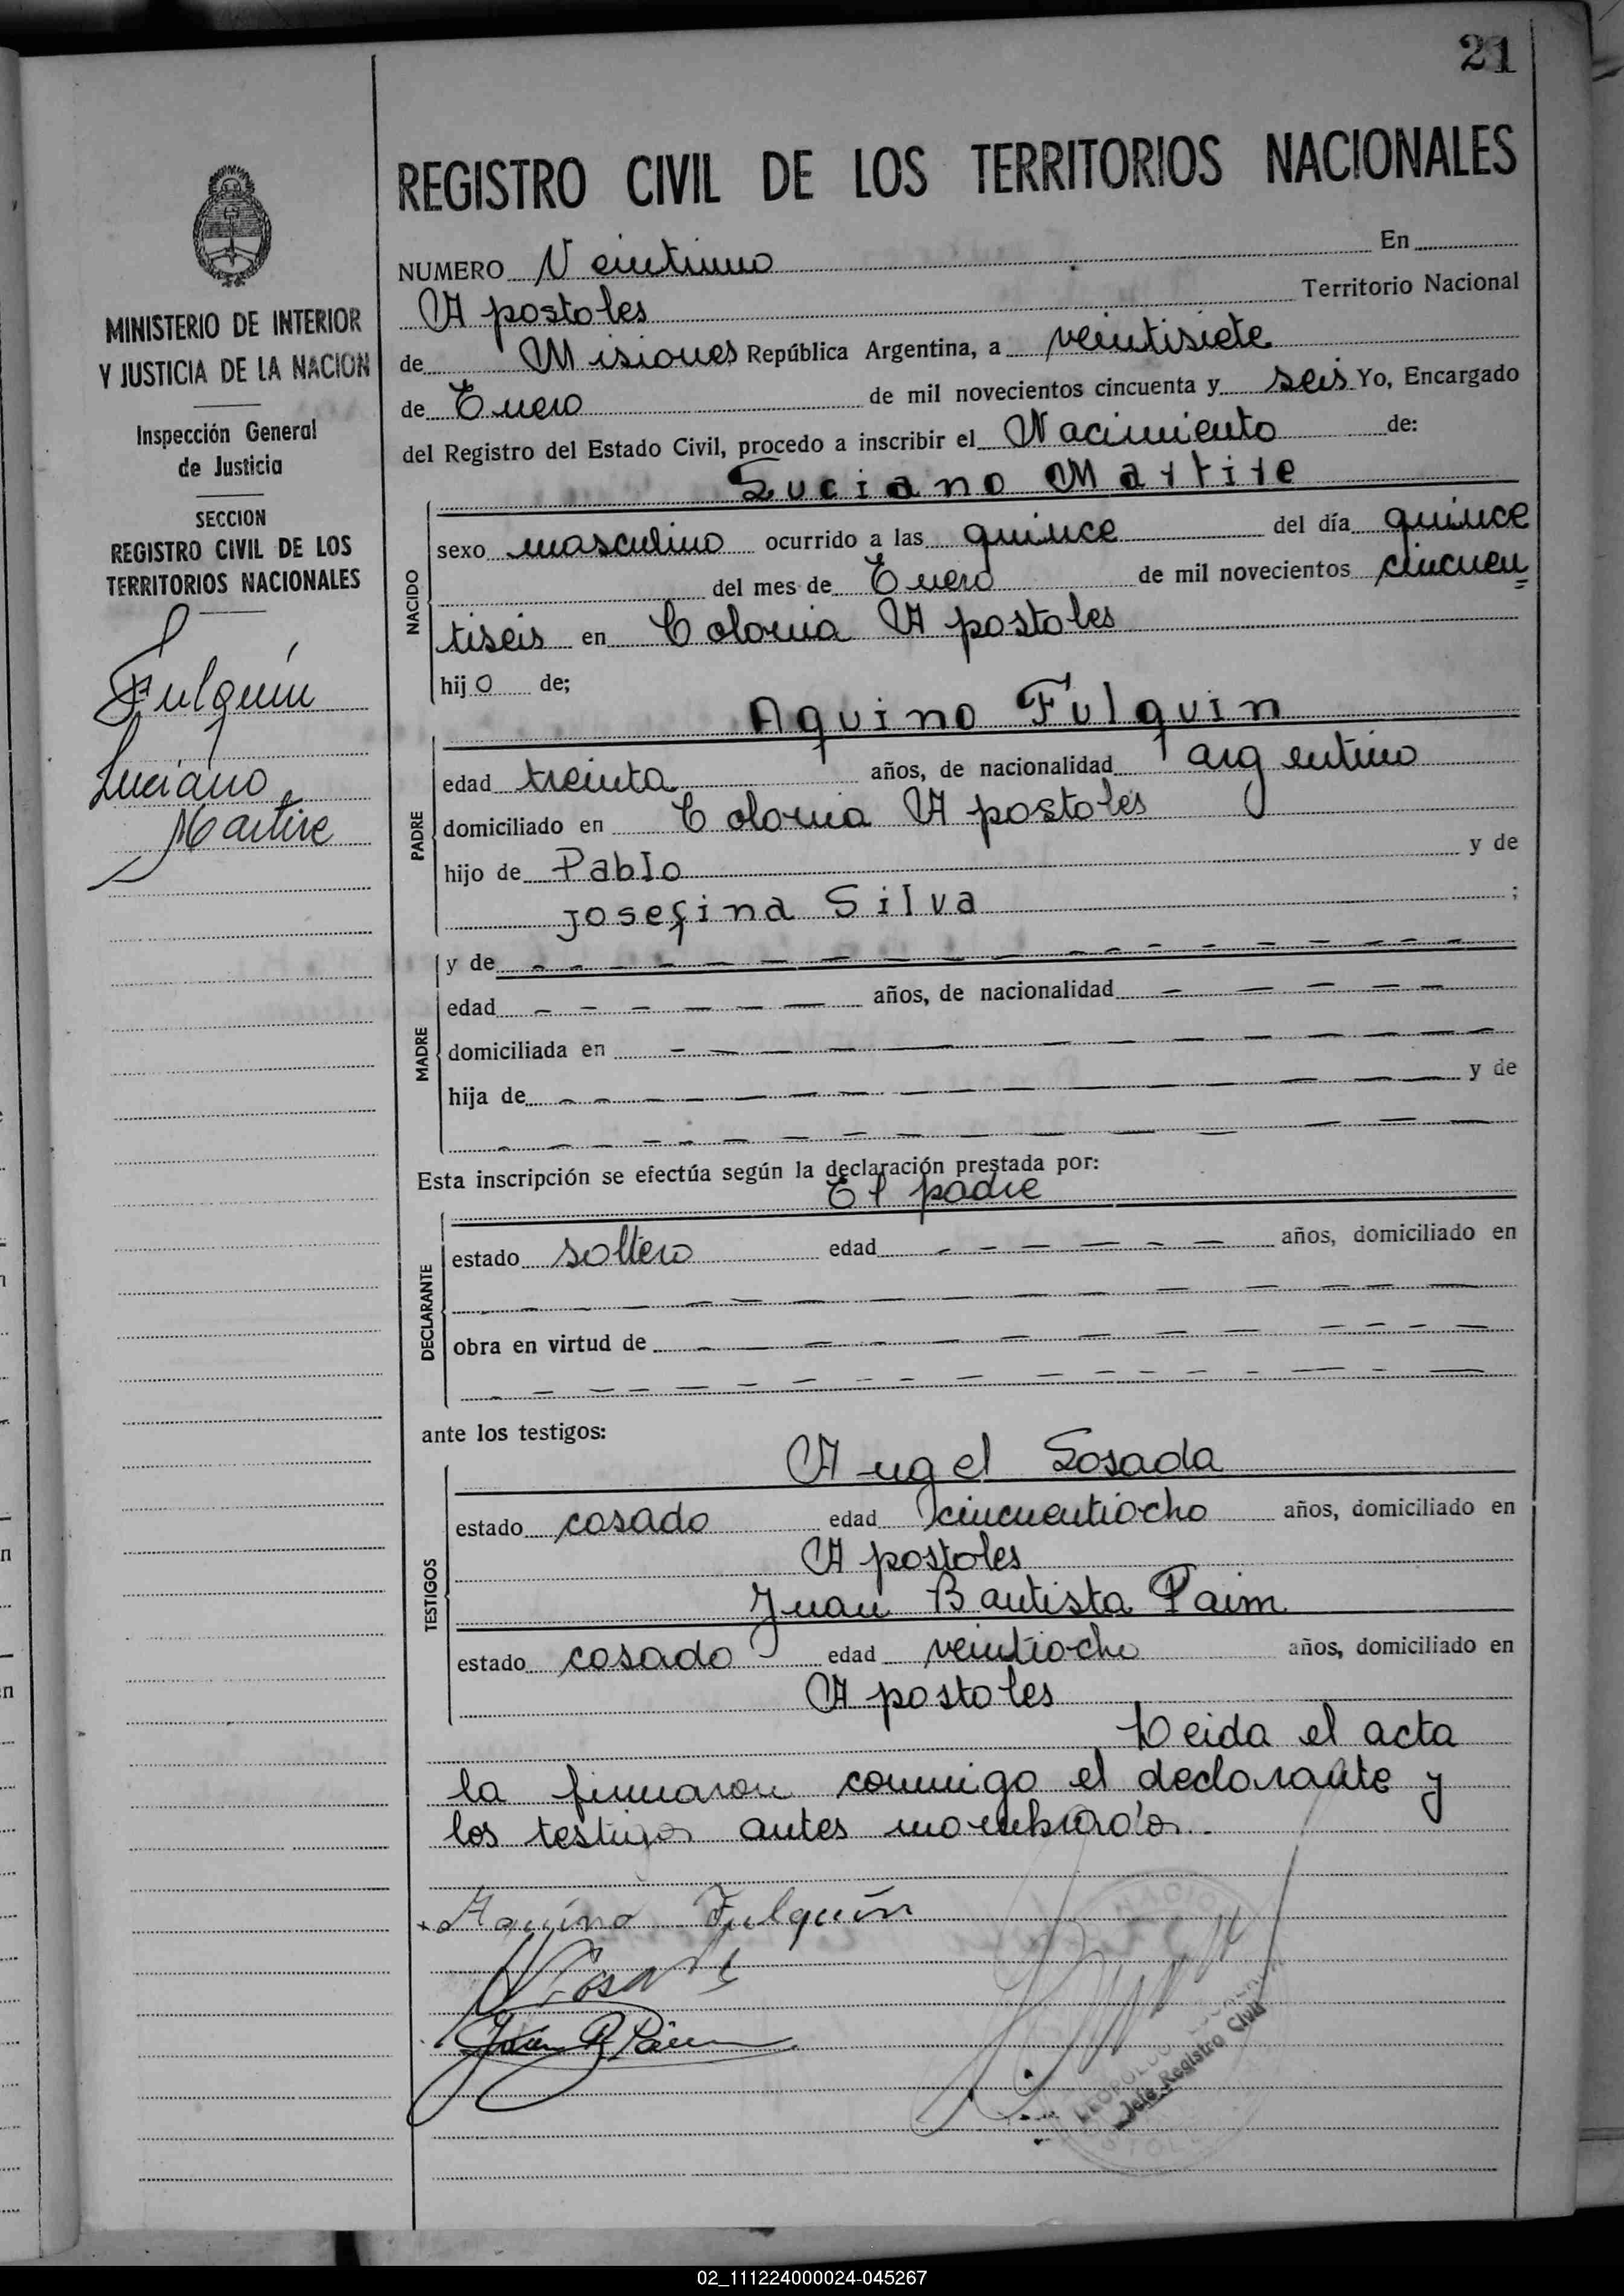 21
REGISTRO CIVIL DE LOS TERRITORIOS NACIONALES
MINISTERIO DE INTERIOR
Y JUSTICIA DE LA NACION
Inspección General
de Justicia
SECCION
REGISTRO CIVIL DE LOS
TERRITORIOS NACIONALES
Fulquín
Luciano
Martire
NUMERO Veintiuno En
Apostoles Territorio Nacional
de Misiones República Argentina, a veintisiete
de Enero de mil novecientos cincuenta y seis Yo, Encargado
del Registro del Estado Civil, procedo a inscribir el Nacimiento de:
Luciano Martire
NACIDO
sexo masculino ocurrido a las quince del día quince
del mes de Enero de mil novecientos cincuen
tiseis en Colonia Apostoles
hijo de;
Aquino Fulquin
PADRE
edad treinta años, de nacionalidad argentino
domiciliado en Colonia Apostoles
hijo de Pablo y de
Josefina Silva ;
MADRE
y de
edad años, de nacionalidad
domiciliada en
hija de y de
Esta inscripción se efectúa según la declaración prestada por:
El padre
DECLARANTE
estado soltero edad años, domiciliado en
obra en virtud de
ante los testigos:
Angel Losada
TESTIGOS
estado casado edad cincuentiocho años, domiciliado en
Apostoles
Juan Bautista Paim
estado casado edad veintiocho años, domiciliado en
Apostoles
Leida el acta
la firmaron conmigo el declarante y
los testigos antes nombrados.
Aquino Fulquín
Juan B Paim
LEOPOLDO
Jefe Registro Civil
02_111224000024-045267